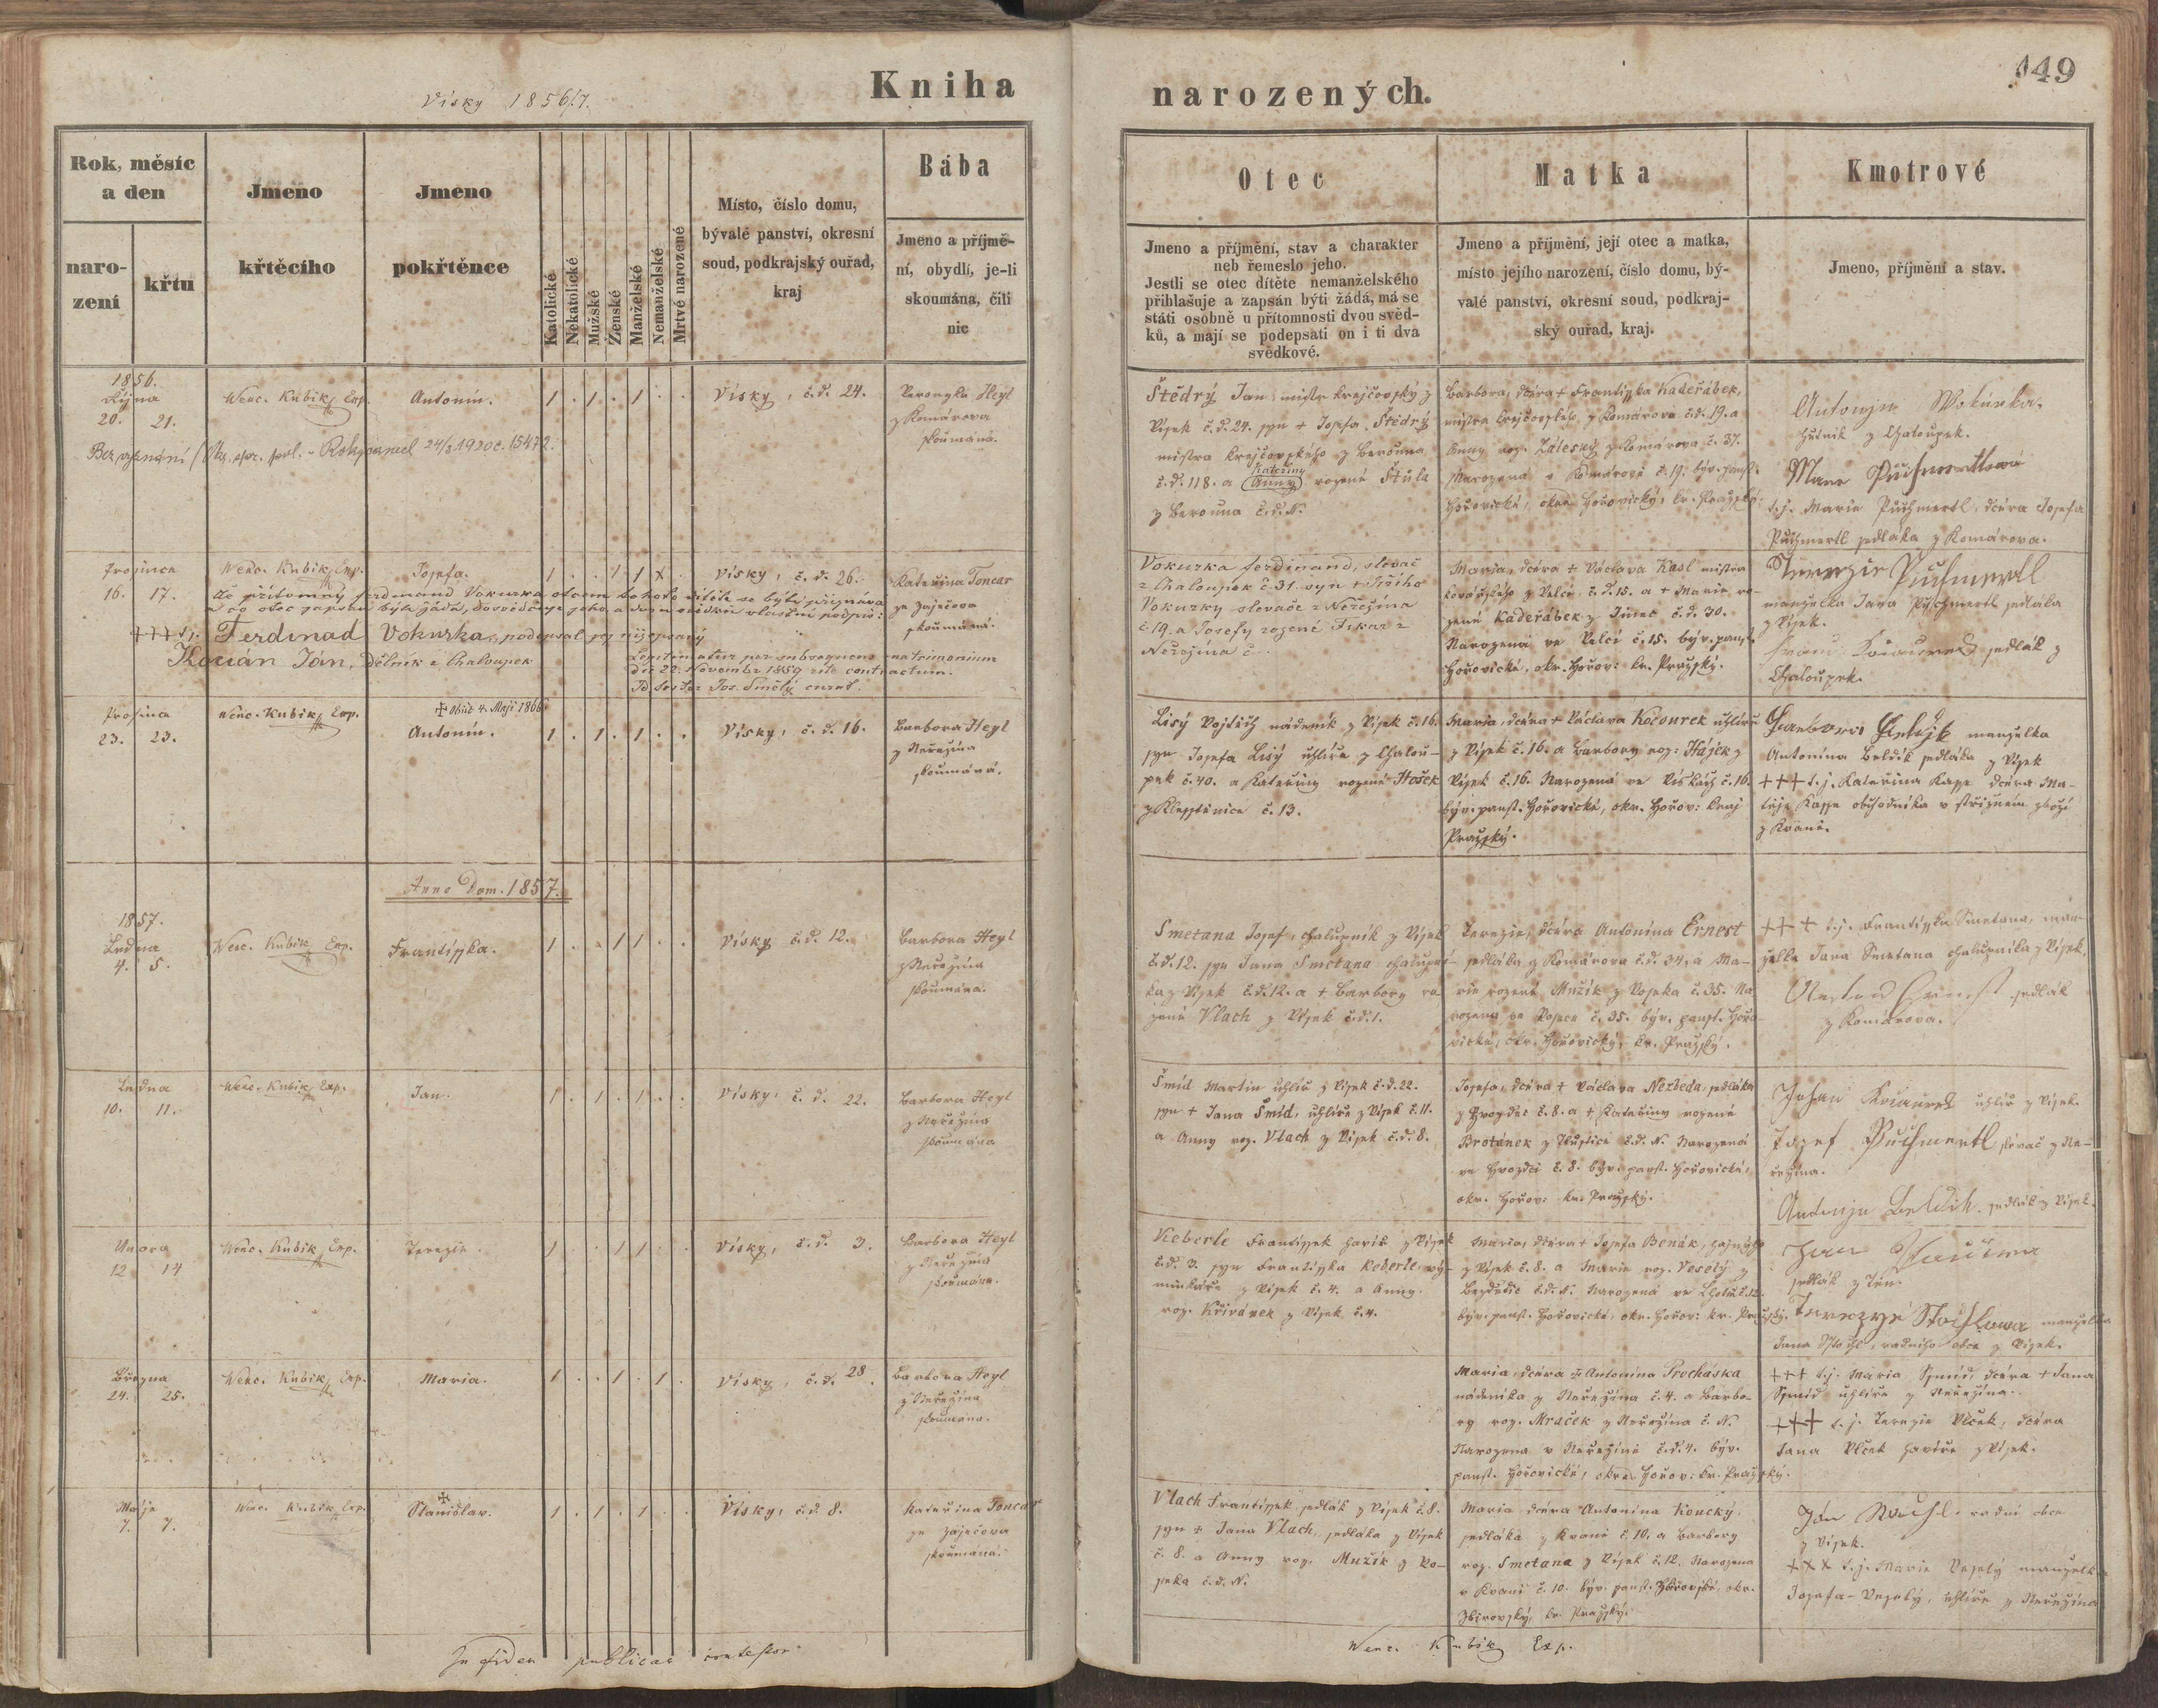 Vísky 1856/7.
Kniha
narozených.
149
Rok, měsíc
a den
naro-
zení
křtu
Jmeno
křtěcího
Jmeno
pokřtěnce
Katolické
Nekatolické
Mužské
Ženské
Manželské
Nemanželské
Mrtvě narozené
Místo, číslo domu,
bývalé panství, okresní
soud, podkrajský ouřad,
kraj
Bába
Jmeno a příjmě-
ní, obydlí, je-li
skoumána, čili
nic
Otec
Jmeno a příjmění, stav a charakter
neb řemeslo jeho.
Jestli se otec dítěte nemanželského
přihlašuje a zapsán býti žádá, má se
státi osobně u přítomnosti dvou svěd-
ků, a mají se podepsati on i ti dva
svědkové.
Matka
Jmeno a příjmění, její otec a matka,
místo jejího narození, číslo domu, bý-
valé panství, okresní soud, podkraj-
ský ouřad, kraj.
Kmotrové
Jmeno, příjmění a stav.
1856.
Října
20. 21.
Wenc. Kubik Exp.
Antonín.
1 . 1 . 1 . .
Vísky, č.d. 24.
Veronyka Heyl
z Komárova
skoumaná.
Bez vyznání
24/3 1920 č. 15472
Štědrý Jan, mistr krejčovský z
Vísek č.d. 24. syn + Josefa Štědrý
mistra krejčovského z Berouna
Kateřiny
č.d. 118. a (Anny) rozené Štůla
z Berouna č.d. N.
Barbora, dcéra + Františka Kadeřábek,
mistra krejčovského z Komárova č.d. 19. a
Anny roz. Záleský z Komárova č. 37.
Narozená v Komárově č. 19. býv. panst.
Hořovické, okr. Hořovický, kr. Pražský.
Antonjn Wokurka.
hutník z Chaloupek.
t.j. Marie Puchmertl, dcéra Josefa
Puchmertl sedláka z Komárova.
Prosince
16. 17.
Wenc. Kubik Exp.
Josefa.
1 . . 1 1 x .
Vísky, č.d. 26.
Kateřina Toncar
ze Zaječova
skoumaná.
Že přítomný Ferdinand Vokurka otcem tohoto dítěte se býti přiznává
a co otec zapsán býti žádá, dosvědčuje jeho a dvou svědků vlastní podpis:
+++ t.j. Ferdinad Vokurka, podepsal
Korián Ján, dělník z Chaloupek
Legitimatur per subsequens matrimonium
die 22. Novembr 1859 rite contractum.
Vokurka Ferdinand, slevač
z Chaloupek č. 31. syn + Jiřího
Vokurky slevače z Neřežína
č. 19. a Josefy rozené Fikar z
Neřežína č. .
Maria, dcéra + Václava Kasl mistra
kovářského z Velcí č.d. 15. a + Marie ro-
zené Kadeřábek z Jinec č.d. 30.
Narozená ve Velcí č. 15. býv. panst.
Hořovické, okr. Hořov: kr. Pražský.
Terezie Puchmertl
manželka Jana Puchmertl sedláka
z Vísek.
sedlák z
Chaloupek.
Prosince
23. 23.
Wenc. Kubik Exp.
+ Obiit 4. Maji 1866
Antonín.
1 . 1 . 1 . .
Vísky, č.d. 16.
Barbora Heyl
z Neřežína
skoumaná.
Lisý Vojtěch nádeník z Vísek č. 16.
syn Josefa Lisý uhlíře z Chalou-
pek č. 40. a Kateřiny rozené Hošek
z Kleštěnice č. 13.
Maria, dcéra + Václava Kočourek uhlíře
z Vísek č. 16. a Barbory roz: Hájek z
Vísek č. 16. Narozená ve Vískách č. 16.
býv. panst. Hořovické, okr. Hořov: kraj
Pražský.
manželka
Antonína Beldík sedláka z Vísek
+++ t.j. Kateřina Kasse dcéra Ma-
těje Kasse obchodníka v střižném zboží
z Kváně.
Anno Dom. 1857.
1857.
Ledna
4. 5.
Wenc. Kubik Exp.
Františka.
1 . . 1 1 . .
Vísky č.d. 12.
Barbora Heyl
z Neřežína
skoumána.
Smetana Josef, chalupník z Vísek
č.d. 12. syn Jana Smetana chalupní-
ka z Vísek č.d. 12. a + Barbory ro-
zené Vlach z Vísek č.d. 1.
Terezie, dcéra Antonína Ernest
sedláka z Komárova č.d. 34, a Ma-
rie rozené Mužík z Voseka č. 35. Na-
rozena ve Vosece č. 35. býv. panst. Hořo-
vické, okr. Hořovický, kr. Pražský.
+++ t.j. Františka Smetana, man-
želka Jana Smetana chalupníka z Vísek,
sedlák
z Komárova.
Ledna
10. 11.
Wenc. Kubik Exp.
Jan.
1 . 1 . 1 . .
Vísky, č.d. 22.
Barbora Heyl
z Neřežína
skoumána
Šmíd Martin uhlíř z Vísek č.d. 22.
syn + Jana Šmíd, uhlíře z Vísek č. 11.
a Anny roz. Vlach z Vísek č.d. 8.
Josefa, dcéra + Václava Nezbeda, sedláka
z Hvozdec č. 8. a + Kateřiny rozené
Brotánek z Tlustice č.d. N. Narozená
ve Hvozdci č. 8. býv. panst. Hořovické,
okr. Hořov: kr. Pražský.
uhlíř z Vísek.
Jozef Puchmertl slévač z Ne-
řežína.
Antonjn Beldik sedlák z Vísek.
Unora
12 14
Wenc. Kubik Exp.
Terezie.
1 . . 1 1 . .
Vísky, č.d. 3.
Barbora Heyl
z Neřežína
skoumána.
Keberle František havíř z Vísek
č.d. 3. syn Františka Keberle vý-
minkáře z Vísek č. 4. a Anny
roz. Křivánek z Vísek č. 4.
Maria, dcéra + Josefa Benák, hajného
z Vísek č. 8. a Marie roz. Veselý z
Bezdědic č.d. N. Narozená ve Lhotě č. 12.
býv. panst. Hořovické, okr. Hořov: kr. Pražský.
sedlák z Týn.
Terezye Stochlowa manželka
Jana Stochl, radního obce z Vísek.
Března
24. 25.
Wenc. Kubik Exp.
Maria.
1 . . 1 . 1 .
Vísky, č.d. 28.
Barbora Heyl
z Neřežína
skoumána.
Maria, dcéra + Antonína Procháska
nádeníka z Neřežína č. 4. a Barbo-
ry roz. Mraček z Neřežína č. N.
Narozena v Neřežíně č.d. 4. býv.
panst. Hořovické, okres Hořov: kr. Pražský.
+++ t.j. Maria Šmíd, dcéra + Jana
Šmíd uhlíře z Neřežína.
+++ t.j. Terezie Vlček, dcéra
Jana Vlček havíře z Vísek.
Máje
7. 7.
Wenc. Kubik Exp.
+
Stanislav.
1 . 1 . 1 . .
Vísky, č.d. 8.
Kateřina Toncar
ze Zaječova
skoumaná.
Vlach František, sedlák z Vísek č. 8.
syn + Jana Vlach, sedláka z Vísek
č. 8. a Anny roz. Mužík z Vo-
seka č.d. N.
Maria dcéra Antonína Koucký,
sedláka z Kváně č. 10. a Barbory
roz. Smetana z Vísek č. 12. Narozena
v Kváni č. 10. býv. panst. Zbirovské, okr.
Zbirovský, kr. Pražský.
radní obce
z Vísek.
+++ t.j. Marie Veselý manželka
Josefa Veselý, uhlíře z Neřežína
In fidem publicae contestor
Wenc. Kubik Exp.